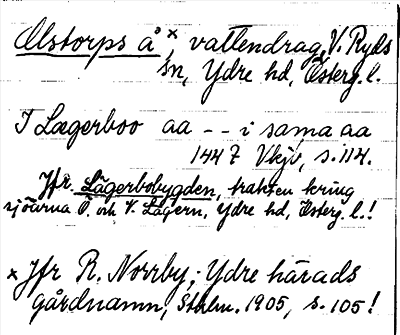 Olstorps å ×, vattendrag, V. Ryds
sn, Ydre hd, Österg. l.
I Lægerboo aa - - i sama aa
1447 Vkjv, s. 114.
Jfr. Lägerbobygden, trakten kring
sjöarna Ö. och V. Lägern, Ydre hd, Österg. l.!
× Jfr R. Norrby, Ydre härads
gårdnamn, Sthlm. 1905, s. 105!